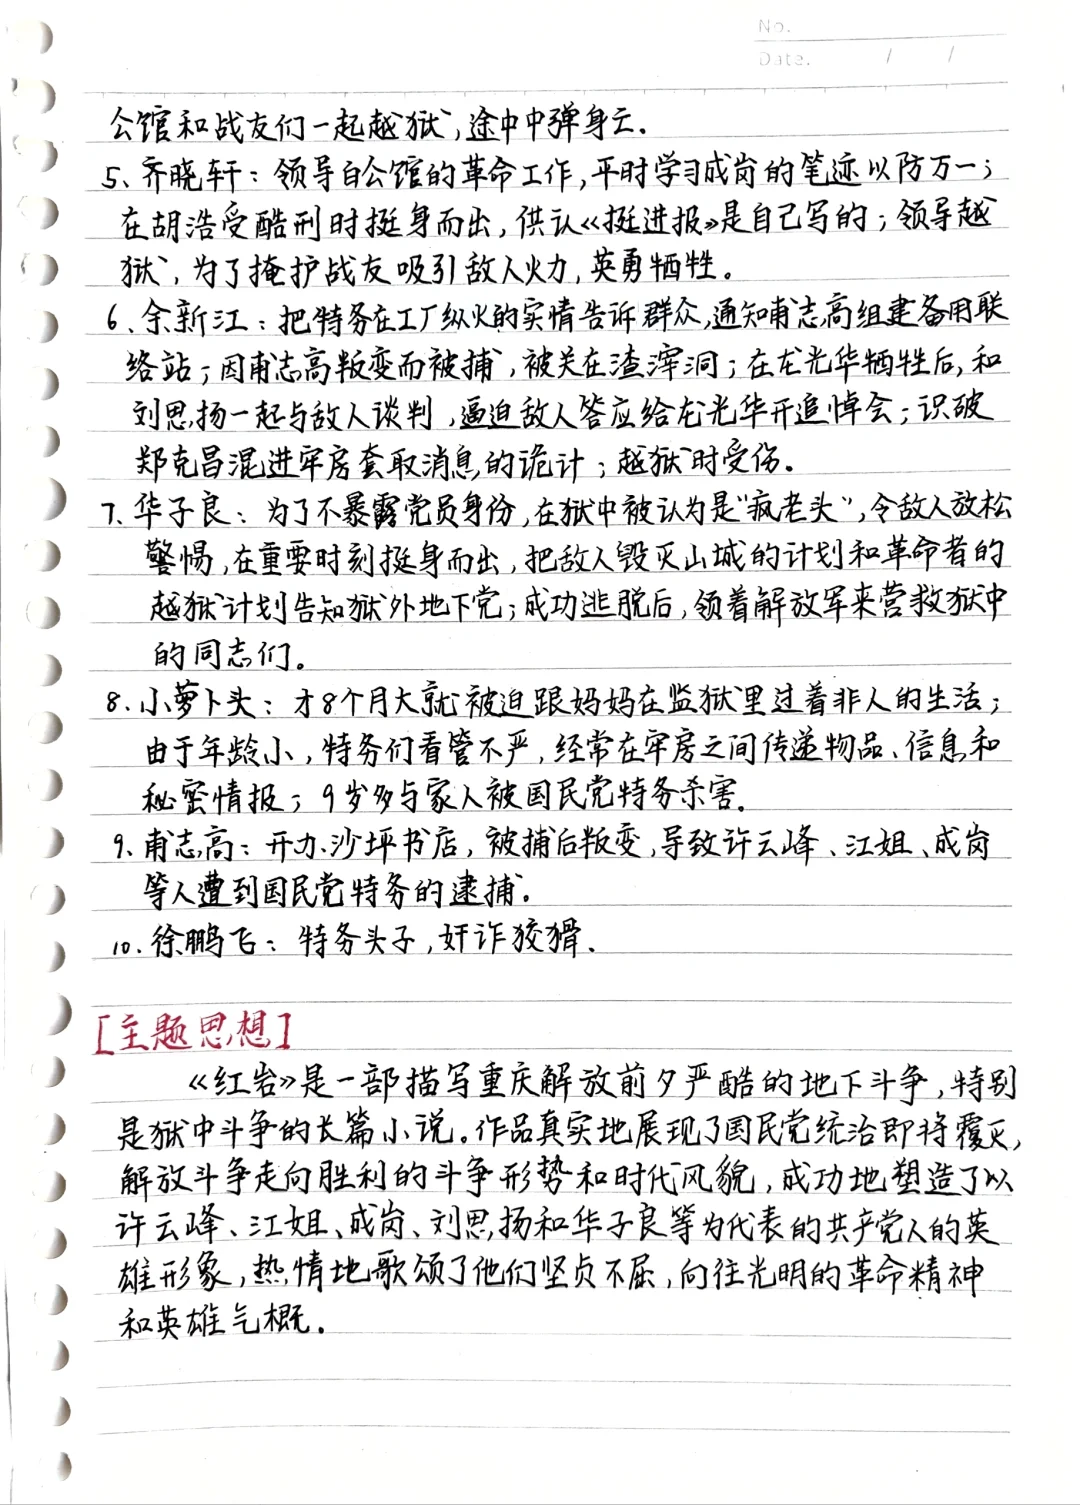 No.
Date. / /
公馆和战友们一起越狱,途中中弹身亡.
5、齐晓轩：领导白公馆的革命工作,平时学习成岗的笔迹以防万一；
在胡浩受酷刑时挺身而出,供认《挺进报》是自己写的；领导越
狱,为了掩护战友吸引敌人火力,英勇牺牲。
6、余新江：把特务在工厂纵火的实情告诉群众,通知甫志高组建备用联
络站；因甫志高叛变而被捕,被关在渣滓洞；在龙光华牺牲后,和
刘思扬一起与敌人谈判,逼迫敌人答应给龙光华开追悼会；识破
郑克昌混进牢房套取消息的诡计；越狱时受伤。
7、华子良：为了不暴露党员身份,在狱中被认为是“疯老头”,令敌人放松
警惕,在重要时刻挺身而出,把敌人毁灭山城的计划和革命者的
越狱计划告知狱外地下党；成功逃脱后,领着解放军来营救狱中
的同志们。
8.小萝卜头：才8个月大就被迫跟妈妈在监狱里过着非人的生活；
由于年龄小,特务们看管不严,经常在牢房之间传递物品、信息和
秘密情报；9岁多与家人被国民党特务杀害.
9.甫志高：开办沙坪书店,被捕后叛变,导致许云峰、江姐、成岗
等人遭到国民党特务的逮捕。
10.徐鹏飞：特务头子,奸诈狡猾.
[主题思想]
《红岩》是一部描写重庆解放前夕严酷的地下斗争,特别
是狱中斗争的长篇小说。作品真实地展现了国民党统治即将覆灭,
解放斗争走向胜利的斗争形势和时代风貌,成功地塑造了以
许云峰、江姐、成岗、刘思扬和华子良等为代表的共产党人的英
雄形象,热情地歌颂了他们坚贞不屈,向往光明的革命精神
和英雄气概.